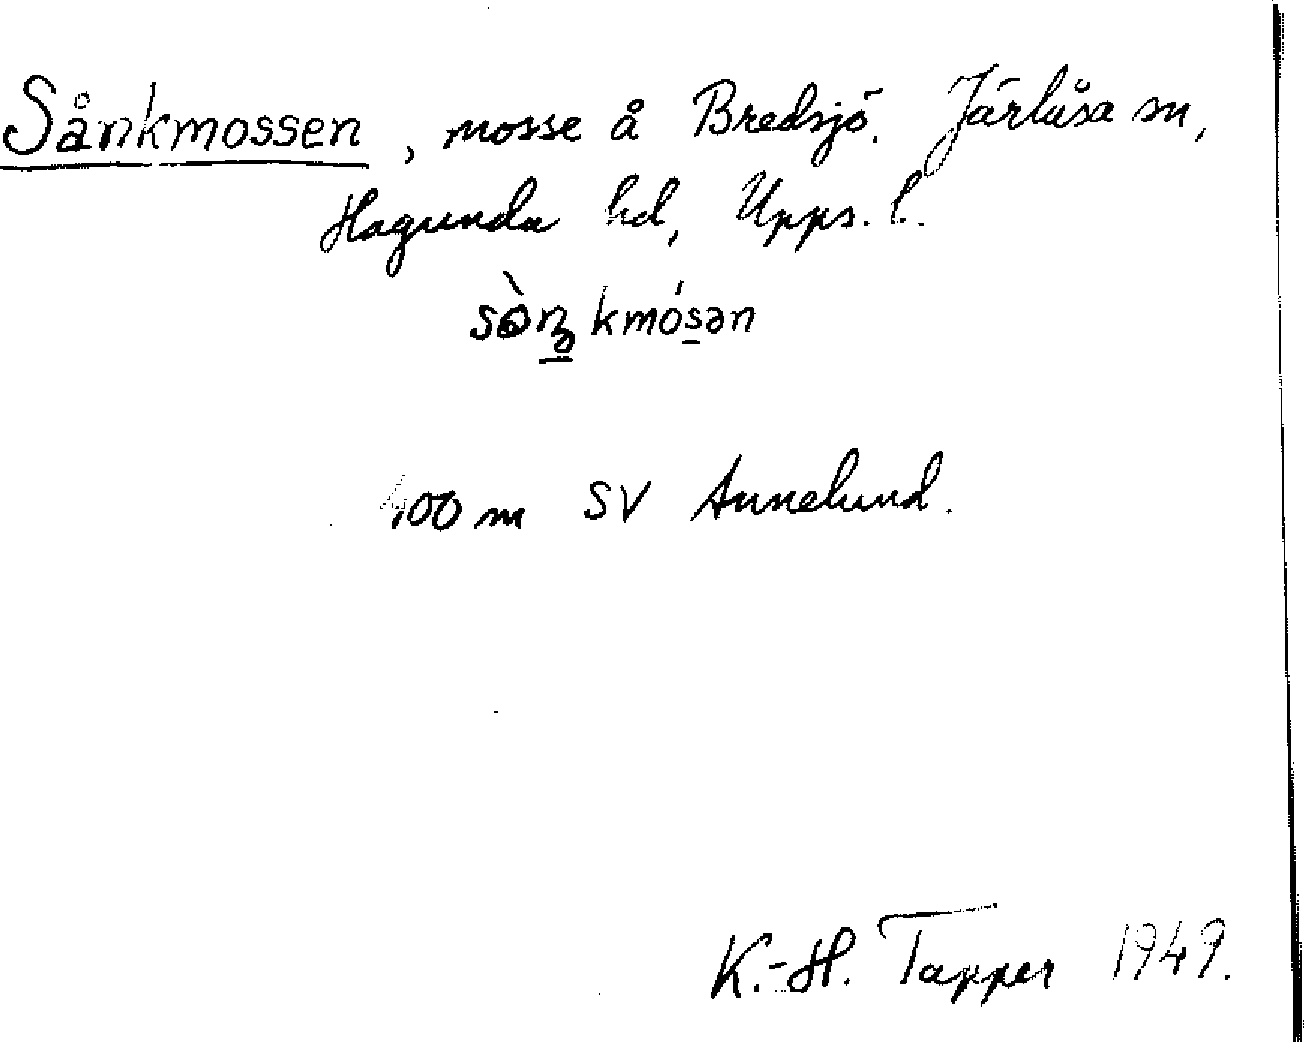 Sånkmossen, mosse å Bredsjö. Järlåsa sn,
Hagunda hd, Upps. l.
sò̀ŋkmósən
400 m SV Annelund.
K.-H. Tapper 1949.